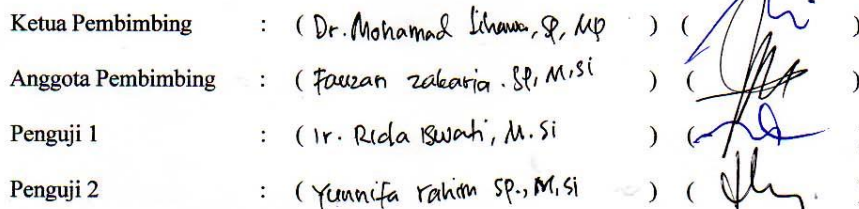 Ketua Pembimbing : ( Dr. Mohamad Lihawa, SP, MP ) ( )
Anggota Pembimbing : ( Fauzan zakaria. SP, M,Si ) ( )
Penguji 1 : ( Ir. Rida Iswati, M. Si ) ( )
Penguji 2 : ( Yunnifa rahim SP., M,si ) (